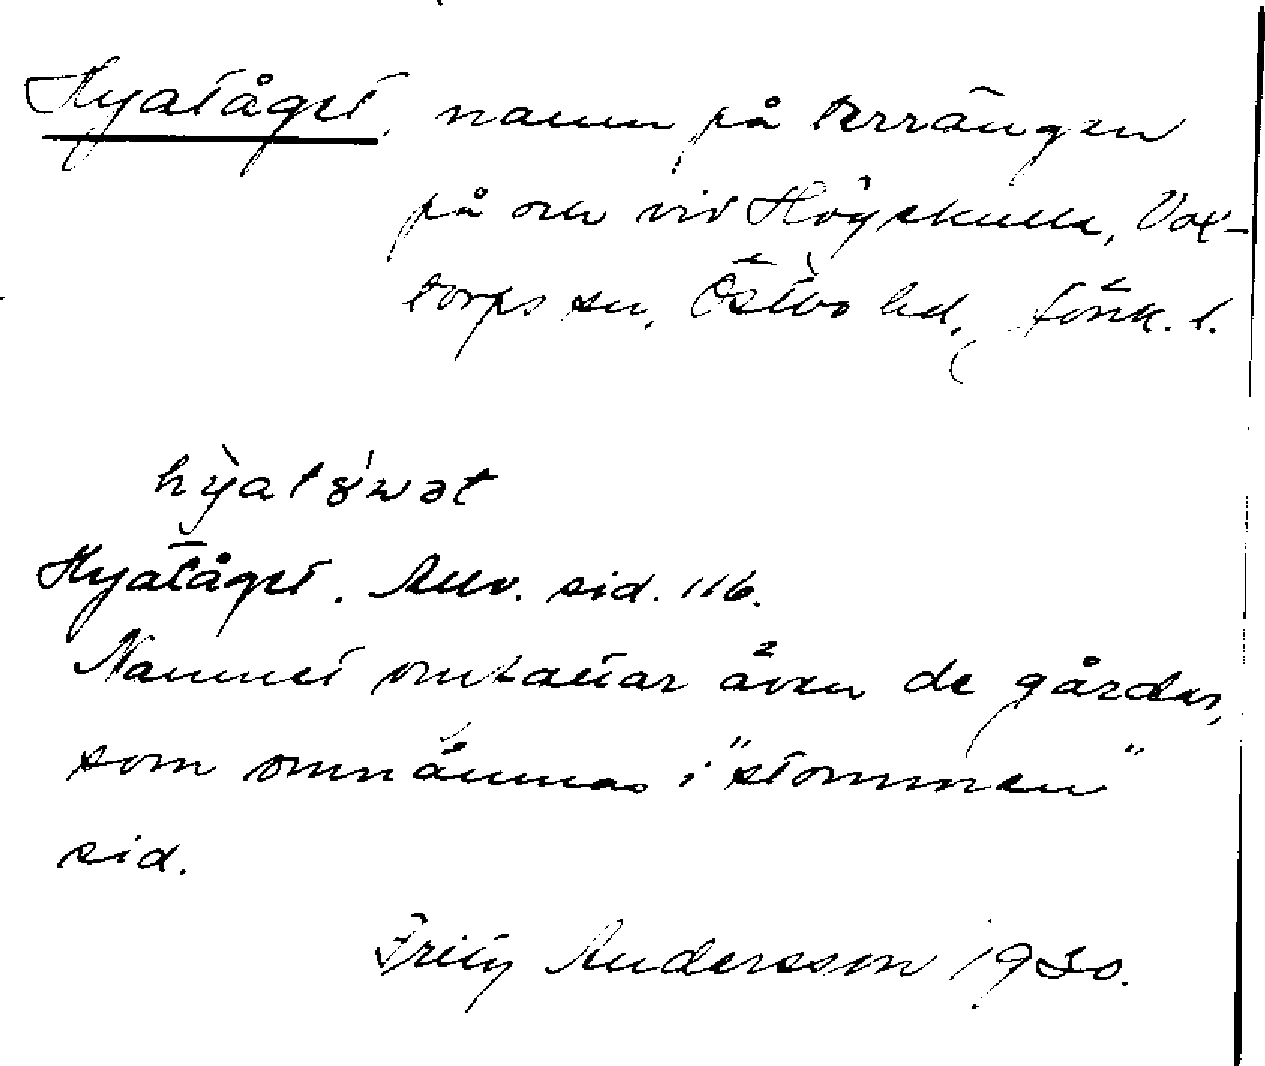 Hyatåget, namn på terrängen
på och vid Högakulla, Vox-
torps sn, Östbo hd, Jönk. l.
Hyatåget. Allv. sid. 116.
Namnet omfattar även de gårdar,
som omnämnas i "stommen"
sid.
Fritz Andersson 1930.